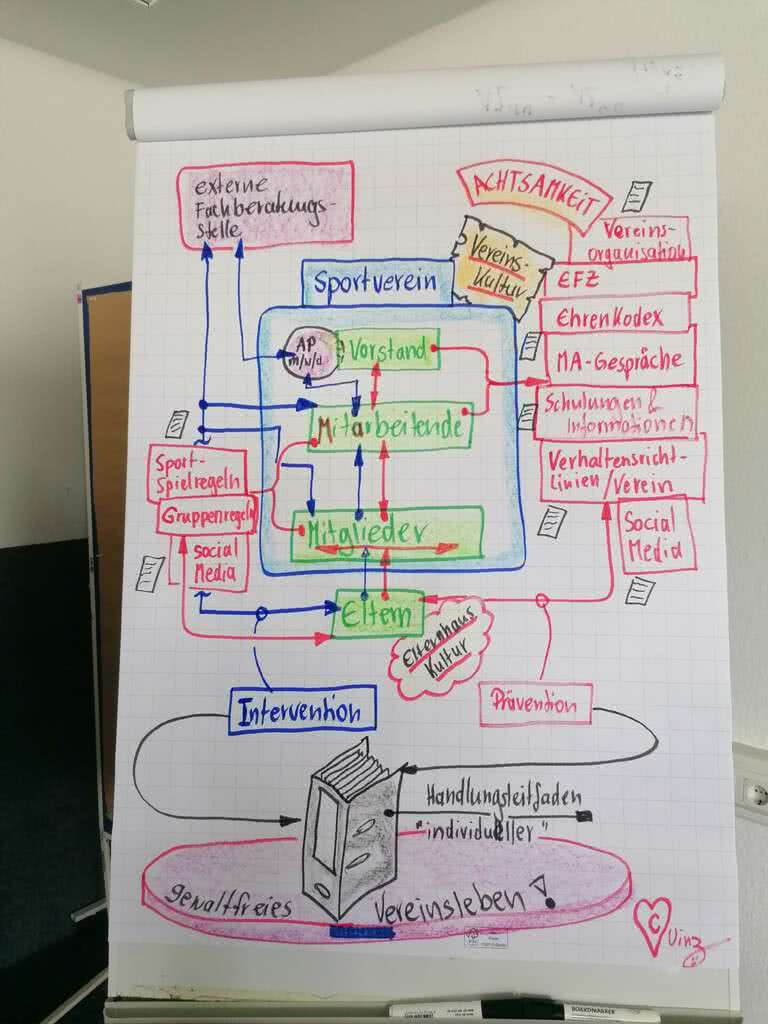 externe
Fachberatungs-
stelle
ACHTSAMKEIT
Vereins-
Kultur
Vereins-
organisation
EFZ
EhrenKodex
MA-Gespräche
Schulungen &
Informationen
Verhaltensricht-
Linien/Verein
Social
Media
Sportverein
AP
m/w/d
Vorstand
Mitarbeitende
Mitglieder
Eltern
Elternhaus
Kultur
Sport-
Spielregeln
Gruppenregeln
Social
Media
Intervention
Prävention
Handlungsleitfaden
"individueller"
gewaltfreies Vereinsleben!
C
Uinz
BOARDMARKER